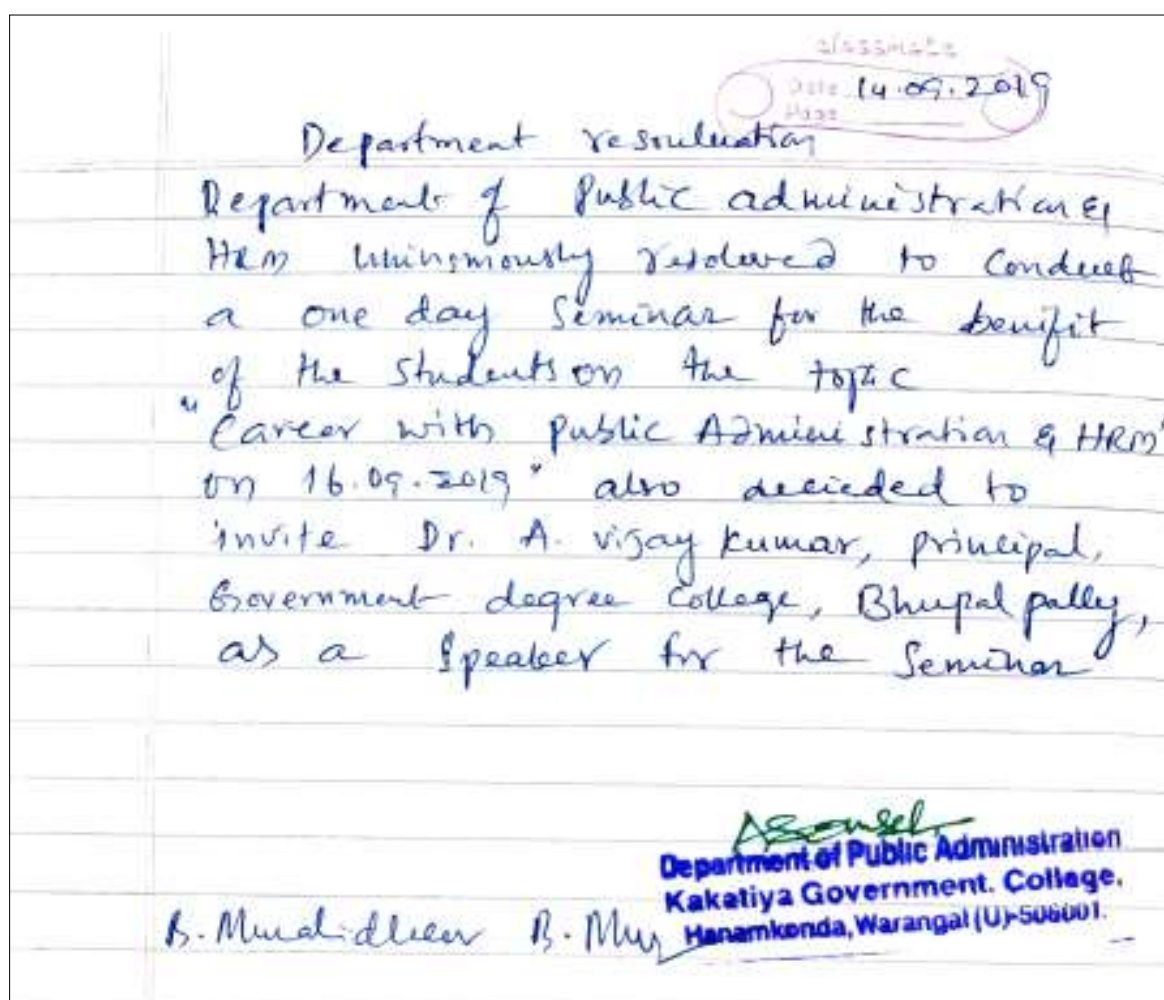 classmate
Date 14.09.2019
Page
Department resouluation
Department of Public administration &
HRM Uninimously resolved to Conduct
a one day Seminar for the benifit
of the students on the topic
"Career with public Administration & HRM"
on 16.09.2019" also decieded to
invite Dr. A. vijay kumar, principal,
Government degree College, Bhupal pally,
as a Speaker for the Seminar
Department of Public Administration
Kakatiya Government. College.
Hanamkonda, Warangal (U)-506001.
B. Muralidhar B.